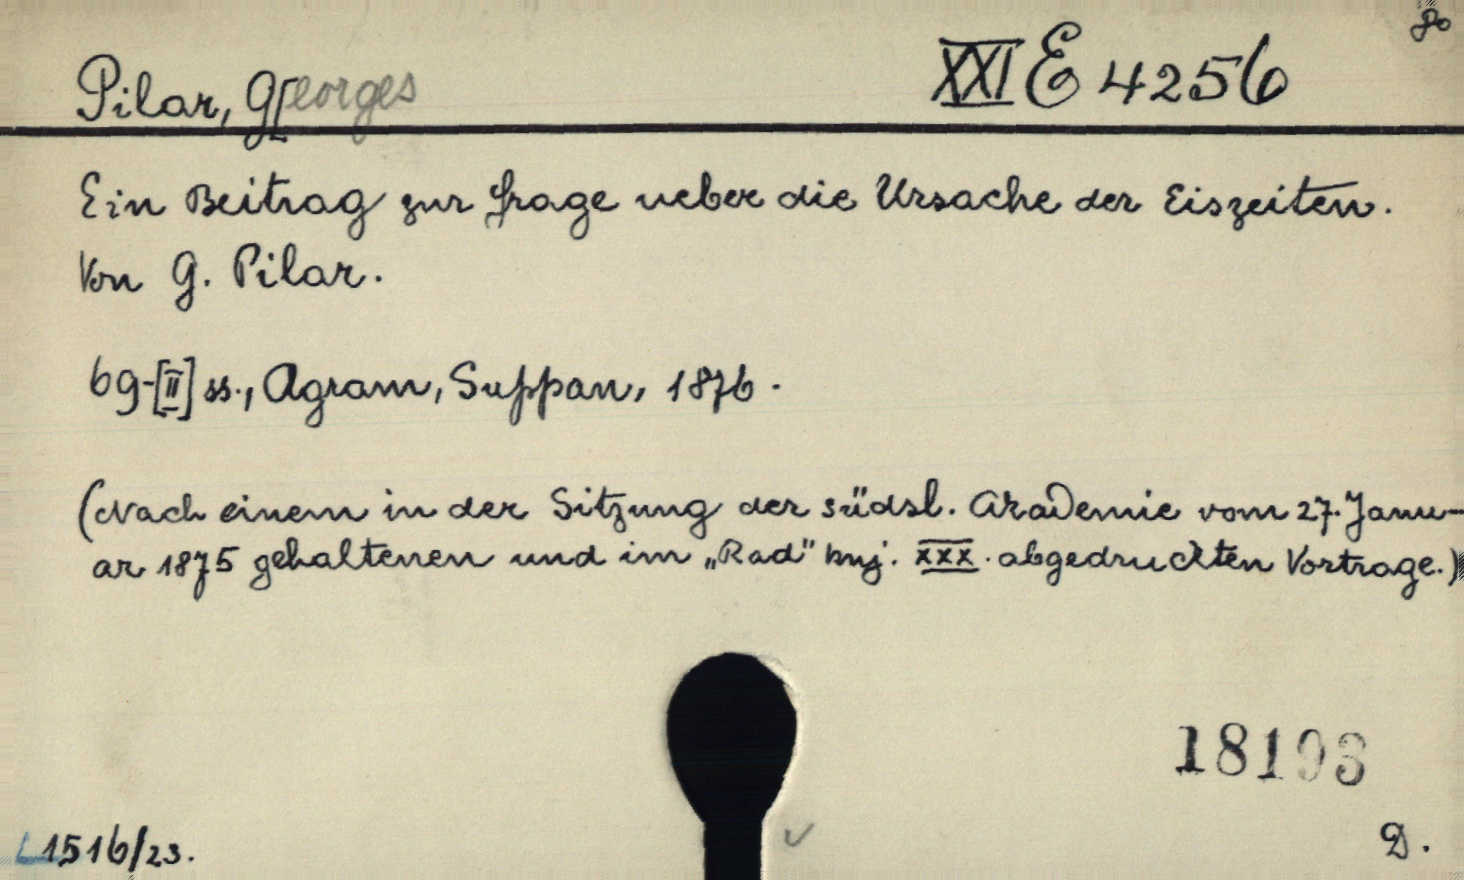 8º
Pilar, G[eorges XXI E 4256
Ein Beitrag zur Frage ueber die Ursache der Eiszeiten.
Von G. Pilar.
69-[II] ss., Agram, Suppan, 1876.
(Nach einem in der Sitzung der südsl. Akademie vom 27. Janu-
ar 1875 gehaltenen und im „Rad" knj. XXX. abgedruckten Vortrage.)
18193
L 1516/23.
D.